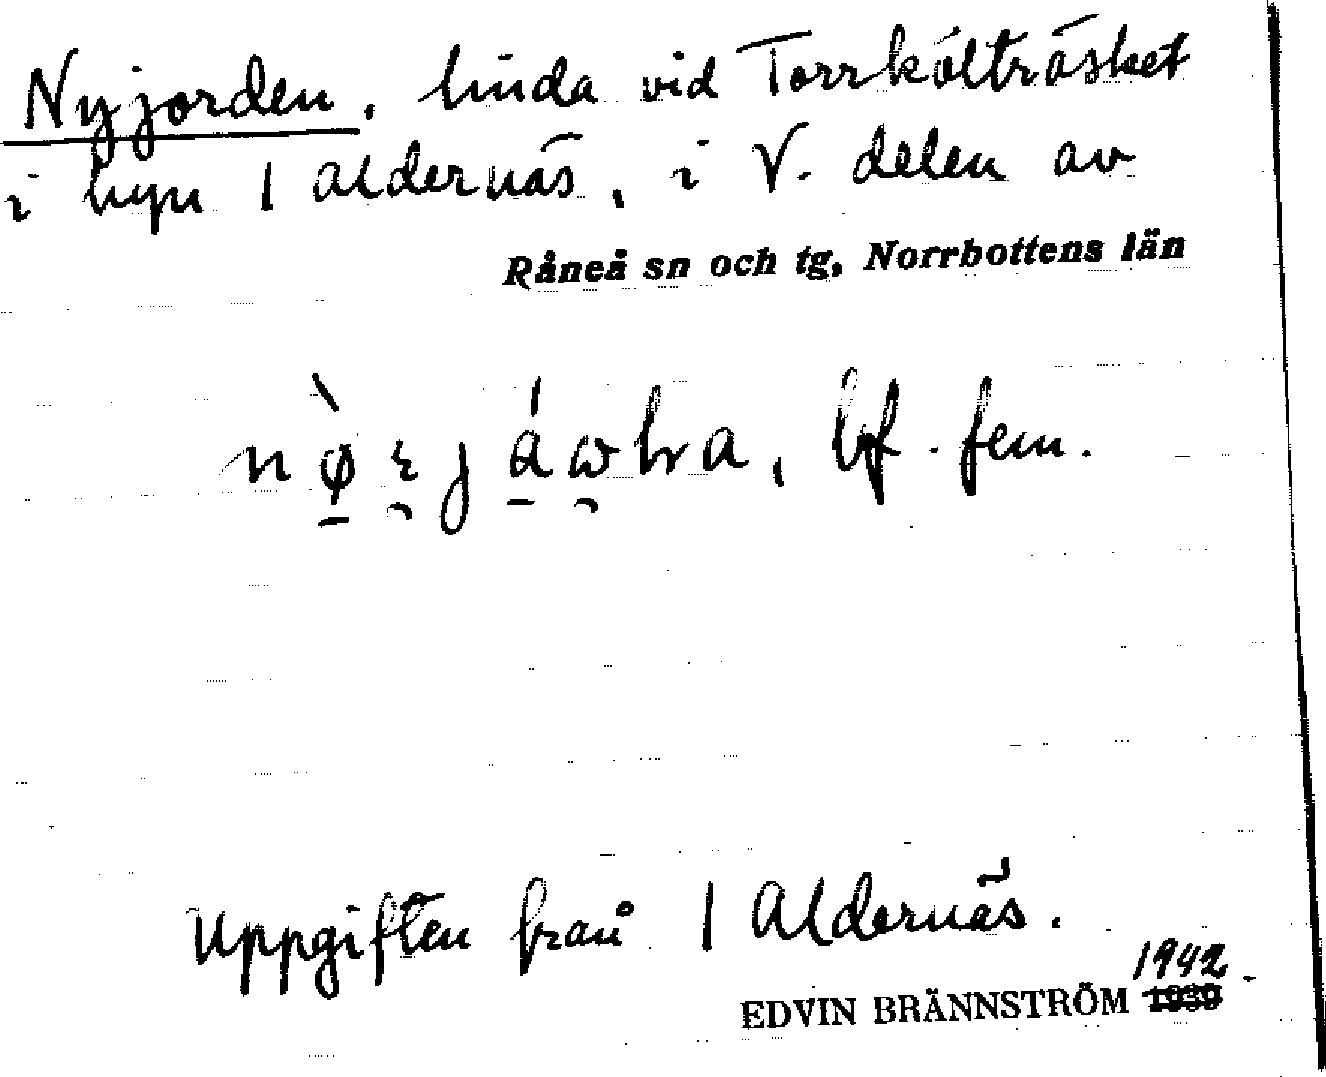 Nyjorden, linda vid Torrkälträsket
i byn 1 aldernäs, i V. delen av
Råneå sn och tg, Norrbottens län
bf. fem.
Uppgiften från 1 Aldernäs.
1942
EDVIN BRÄNNSTRÖM 1939